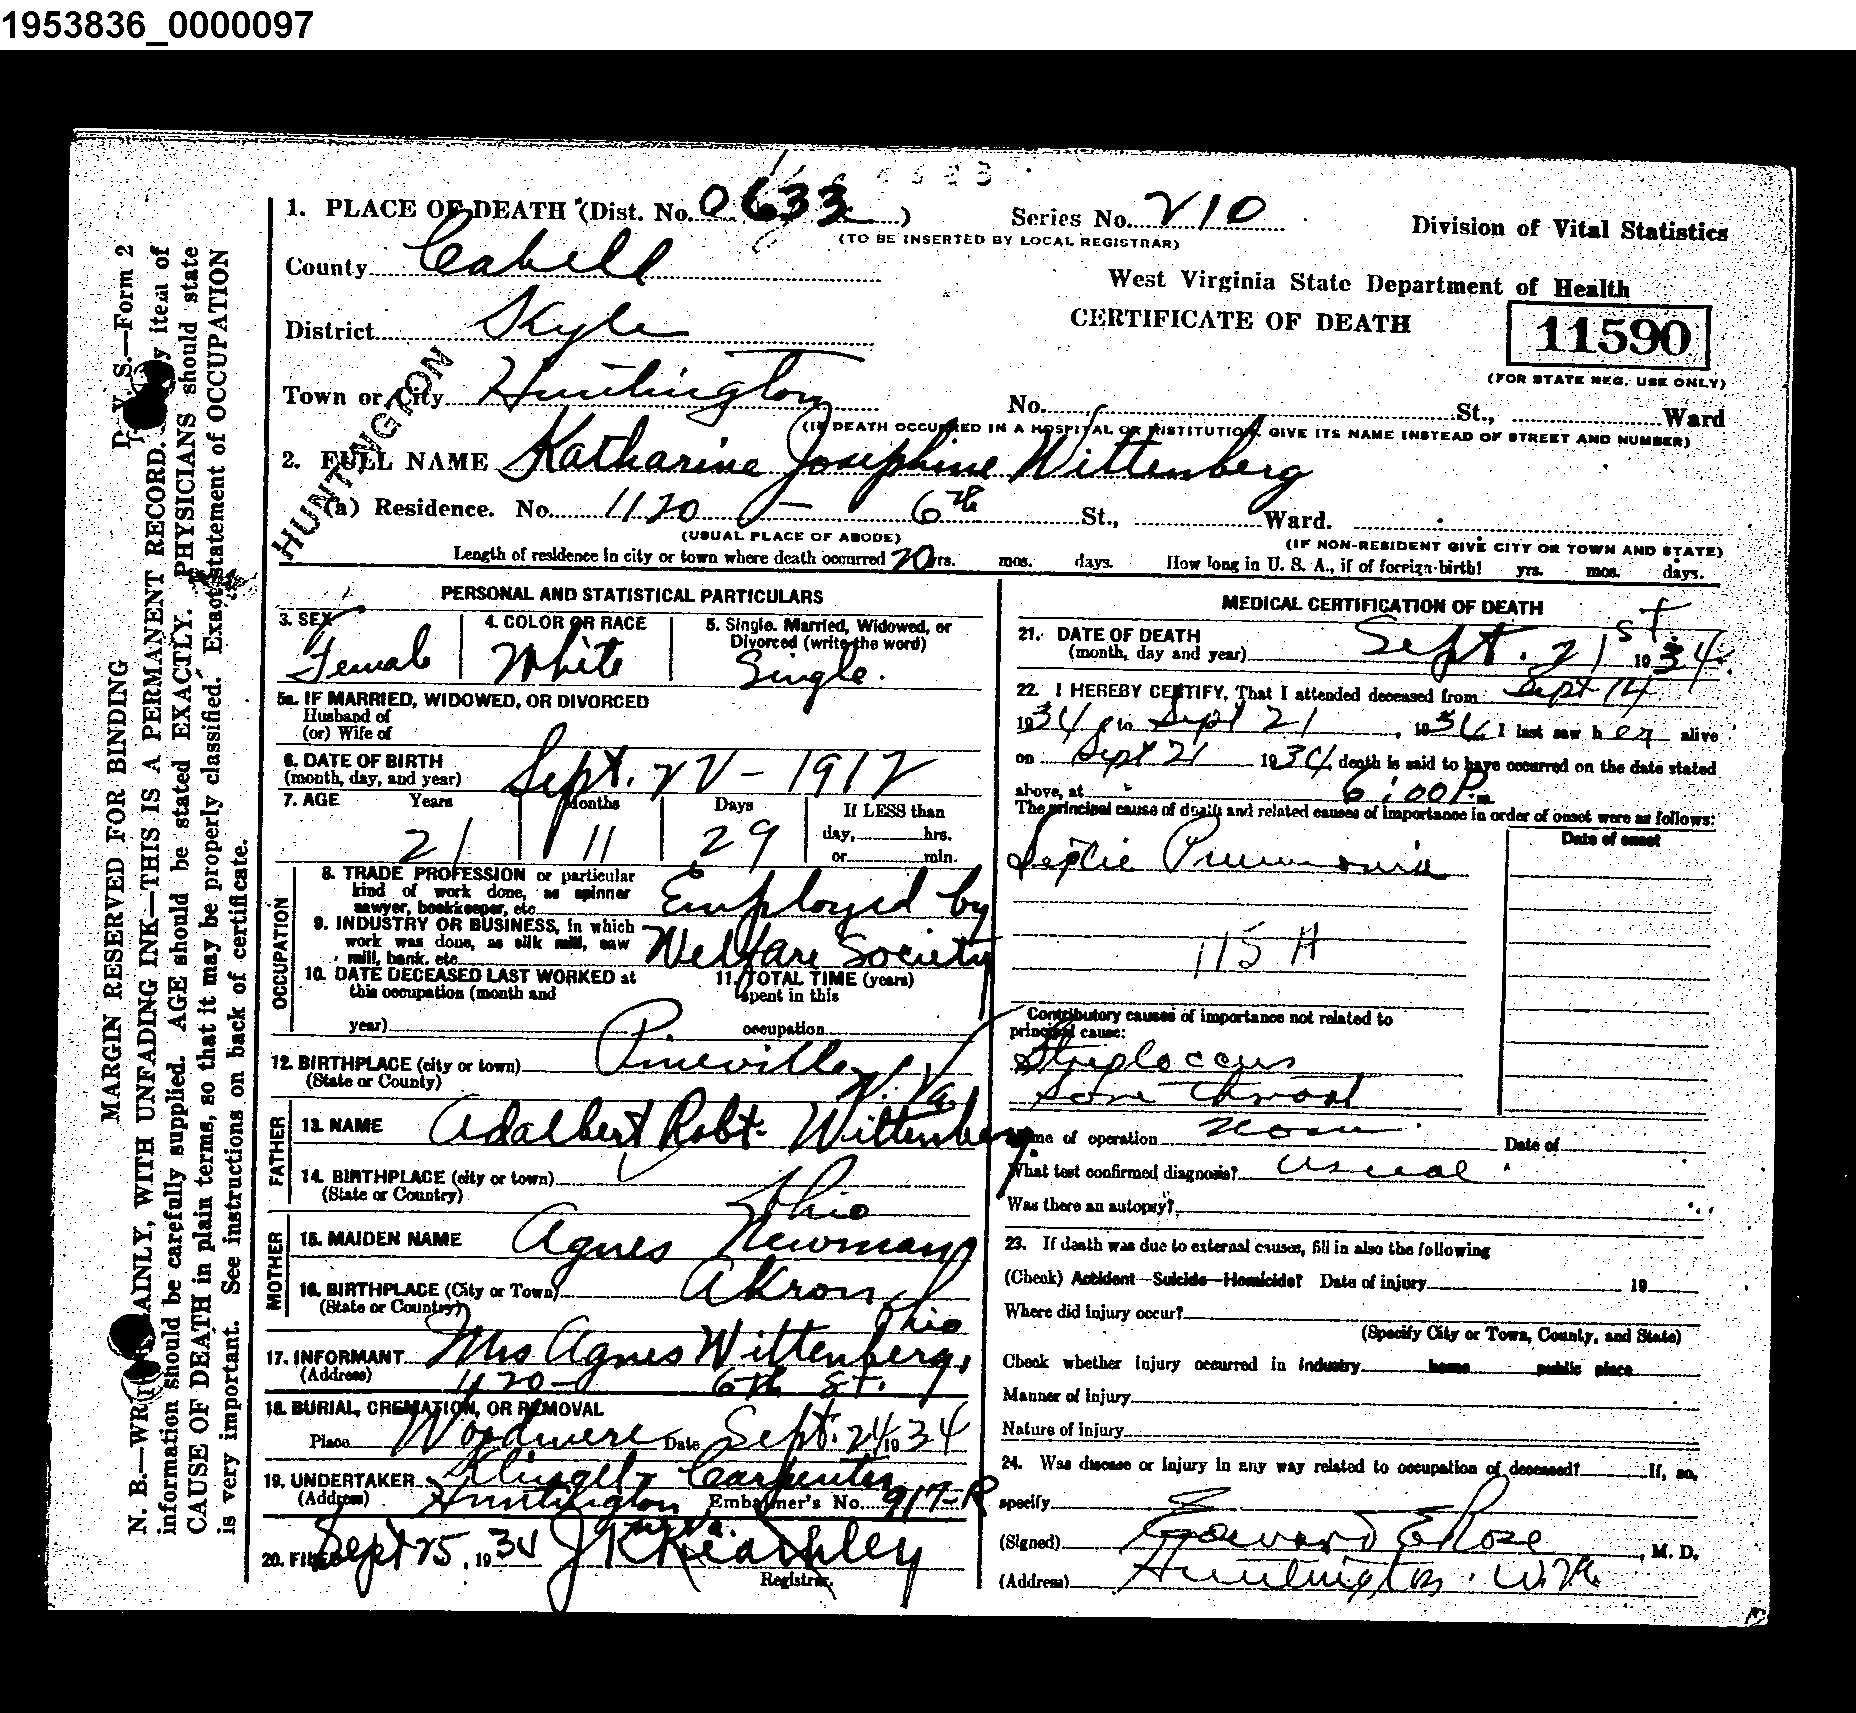 1953836_0000097
1. PLACE OF DEATH (Dist. No. 0633 ) Series No. 210 Division of Vital Statistics
(TO BE INSERTED BY LOCAL REGISTRAR)
County Cabell
West Virginia State Department of Health
District Kyle CERTIFICATE OF DEATH 11590
(FOR STATE REG. USE ONLY)
HUNTINGTON
Town or City Huntington No. St., Ward
(IF DEATH OCCURRED IN A HOSPITAL OR INSTITUTION, GIVE ITS NAME INSTEAD OF STREET AND NUMBER)
2. FULL NAME Katharine Josephine Wittenberg
(a) Residence. No. 1120 – 6th St., Ward.
(USUAL PLACE OF ABODE) (IF NON-RESIDENT GIVE CITY OR TOWN AND STATE)
Length of residence in city or town where death occurred 20 yrs. mos. days. How long in U. S. A., if of foreign birth? yrs. mos. days.
PERSONAL AND STATISTICAL PARTICULARS
3. SEX 4. COLOR OR RACE 5. Single, Married, Widowed, or
Divorced (write the word)
Female White Single.
5a. IF MARRIED, WIDOWED, OR DIVORCED
Husband of
(or) Wife of
6. DATE OF BIRTH
(month, day, and year) Sept. 22 - 1912
7. AGE Years Months Days If LESS than
21 11 29 day, hrs.
or min.
OCCUPATION
8. TRADE PROFESSION or particular
kind of work done, as spinner
sawyer, bookkeeper, etc. Employed by
9. INDUSTRY OR BUSINESS, in which
work was done, as silk mill, saw
mill, bank. etc. Welfare Society
10. DATE DECEASED LAST WORKED at 11. TOTAL TIME (years)
this occupation (month and spent in this
year) occupation
12. BIRTHPLACE (city or town) Pineville
(State or County) W. Va.
FATHER
13. NAME Adalbert Robt. Wittenberg
14. BIRTHPLACE (city or town)
(State or Country) Ohio
MOTHER
15. MAIDEN NAME Agnes Newman
16. BIRTHPLACE (City or Town) Akron
(State or Country) Ohio
17. INFORMANT Mrs Agnes Wittenberg,
(Address) 1120 - 6th St.
18. BURIAL, CREMATION, OR REMOVAL
Place Woodmere Date Sept. 24 1934
19. UNDERTAKER Klingel - Carpenter
(Address) Huntington Embalmer's No. 917-R
W. Va.
20. FILED Sept 25, 1934 J K Keathley
Registrar.
MEDICAL CERTIFICATION OF DEATH
21. DATE OF DEATH
(month, day and year) Sept. 21st 1934
22. I HEREBY CERTIFY, That I attended deceased from Sept 14
1934, to Sept 21, 1934 I last saw her alive
on Sept 21 1934, death is said to have occurred on the date stated
above, at 6:00 P.m
The principal cause of death and related causes of importance in order of onset were as follows:
Date of onset
Septic Pneumonia
115 A
Contributory causes of importance not related to
principal cause:
Streptococcus
Sore throat
Name of operation None Date of
What test confirmed diagnosis? Usual
Was there an autopsy?
23. If death was due to external causes, fill in also the following
(Check) Accident—Suicide—Homicide? Date of injury 19
Where did injury occur?
(Specify City or Town, County, and State)
Check whether injury occurred in industry home public place
Manner of injury
Nature of injury
24. Was disease or injury in any way related to occupation of deceased? If, so,
specify
(Signed) Edward E Rose, M. D.
(Address) Huntington. W. Va
D. V. S.—Form 2
MARGIN RESERVED FOR BINDING
N. B.—WRITE PLAINLY, WITH UNFADING INK—THIS IS A PERMANENT RECORD. Every item of
information should be carefully supplied. AGE should be stated EXACTLY. PHYSICIANS should state
CAUSE OF DEATH in plain terms, so that it may be properly classified. Exact statement of OCCUPATION
is very important. See instructions on back of certificate.